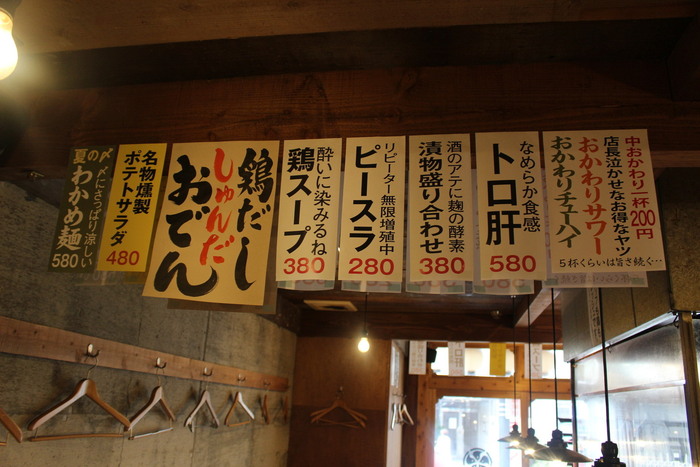 〆〆にさっぱり涼しい
夏のわかめ麺
580
名物燻製
ポテトサラダ
480
鶏だし
しゅんだ
おでん
酔いに染みるね
鶏スープ
380
リピーター無限増殖中
ピースラ
280
酒のアテに麹の酵素
漬物盛り合わせ
380
なめらか食感
トロ肝
580
中おかわり一杯200円
店長泣かせなお得なヤツ
おかわりサワー
おかわりチューハイ
5杯くらいは旨さ続く…
トロ肝